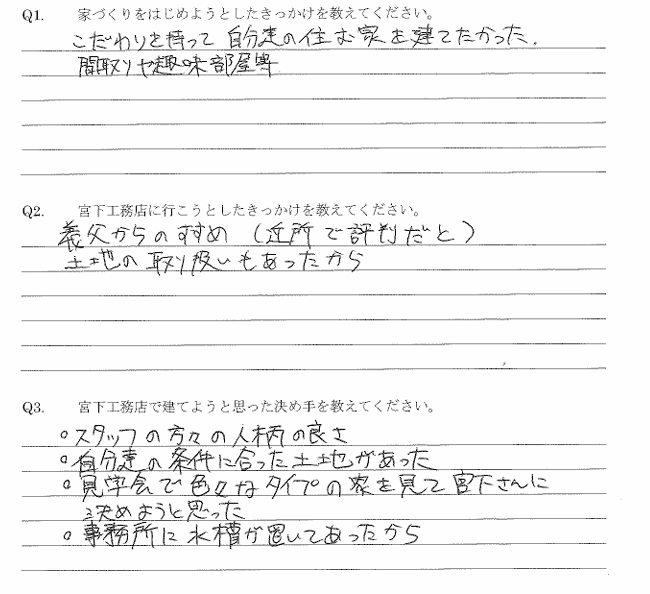 Q1. 家づくりをはじめようとしたきっかけを教えてください。
こだわりを持って 自分達の住む家を建てたかった.
間取りや趣味部屋等
Q2. 宮下工務店に行こうとしたきっかけを教えてください。
義父からのすすめ (近所で評判だと)
土地の取り扱いもあったから
Q3. 宮下工務店で建てようと思った決め手を教えてください。
○スタッフの方々の人柄の良さ
○自分達の条件に合った土地があった
○見学会で色々なタイプの家を見て宮下さんに
決めようと思った
○事務所に水槽が置いてあったから